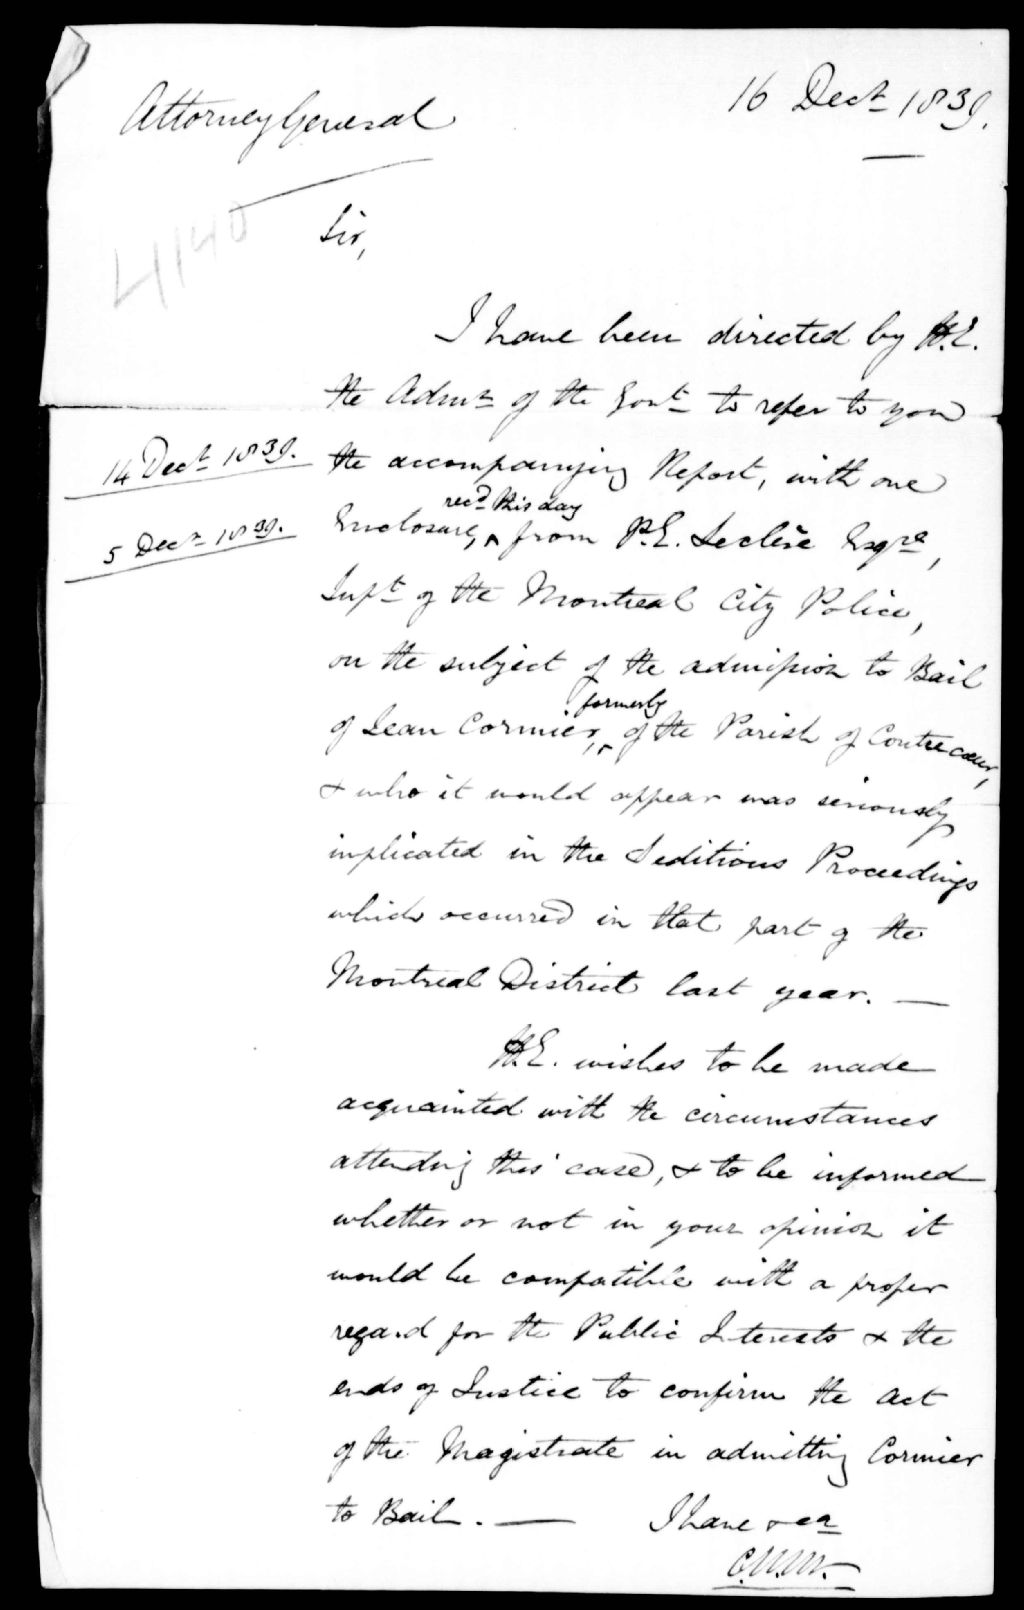 16 Decr 1839.
Attorney General
4140
Sir,
I have been directed by H.E.
the Admr of the Govt to refer to you
14 Decr 1839.
the accompanying Report, with one
5 Decr 1839.
recd this day
Enclosure, ^ from P.E. Leclère Esqre,
Supt of the Montreal City Police,
on the subject of the admission to Bail
formerly
of Jean Cormier, ^ of the Parish of Contrecœur,
& who it would appear was seriously
implicated in the Seditious Proceedings
which occurred in that part of the
Montreal District last year. —
H.E. wishes to be made
acquainted with the circumstances
attending this case, & to be informed
whether or not in your opinion it
would be compatible with a proper
regard for the Public Interests & the
ends of Justice to confirm the act
of the Magistrate in admitting Cormier
to Bail. —
I have &ca